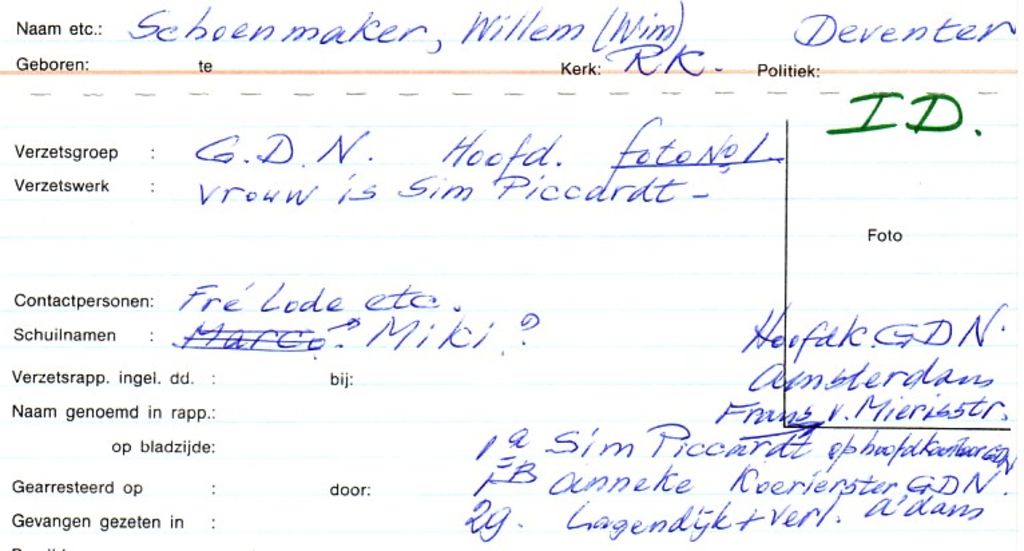 Naam etc.: Schoenmaker, Willem (Wim) Deventer
Geboren: te Kerk: RK. Politiek:
I D.
Verzetsgroep : G. D. N. Hoofd. foto No 1
Verzetswerk : Vrouw is Sim Piccardt -
Foto
Contactpersonen: Fré Lode etc.
Schuilnamen : Marco? Miki?
Hoofdk GDN
Verzetsrapp. ingel. dd. : bij: Amsterdam
Naam genoemd in rapp.: Frans v. Mierisstr.
op bladzijde: 1a Sim Piccardt op hoofdkantoor GDN
Gearresteerd op : door: 1B Anneke Koerierster GDN.
Gevangen gezeten in : 2g. Lagendijk + verl. A'dam